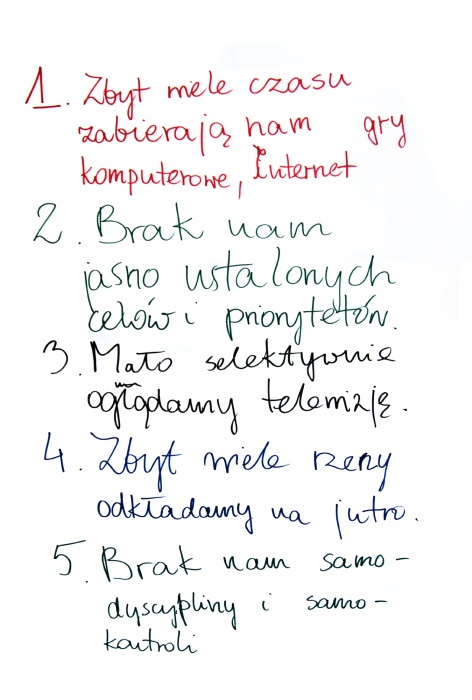 1. Zbyt wiele czasu
zabierają nam gry
komputerowe, Internet
2. Brak nam
jasno ustalonych
celów i priorytetów.
3. Mało selektywnie
oglądamy telewizję.
4. Zbyt wiele rzeczy
odkładamy na jutro.
5. Brak nam samo-
dyscypliny i samo-
kontroli